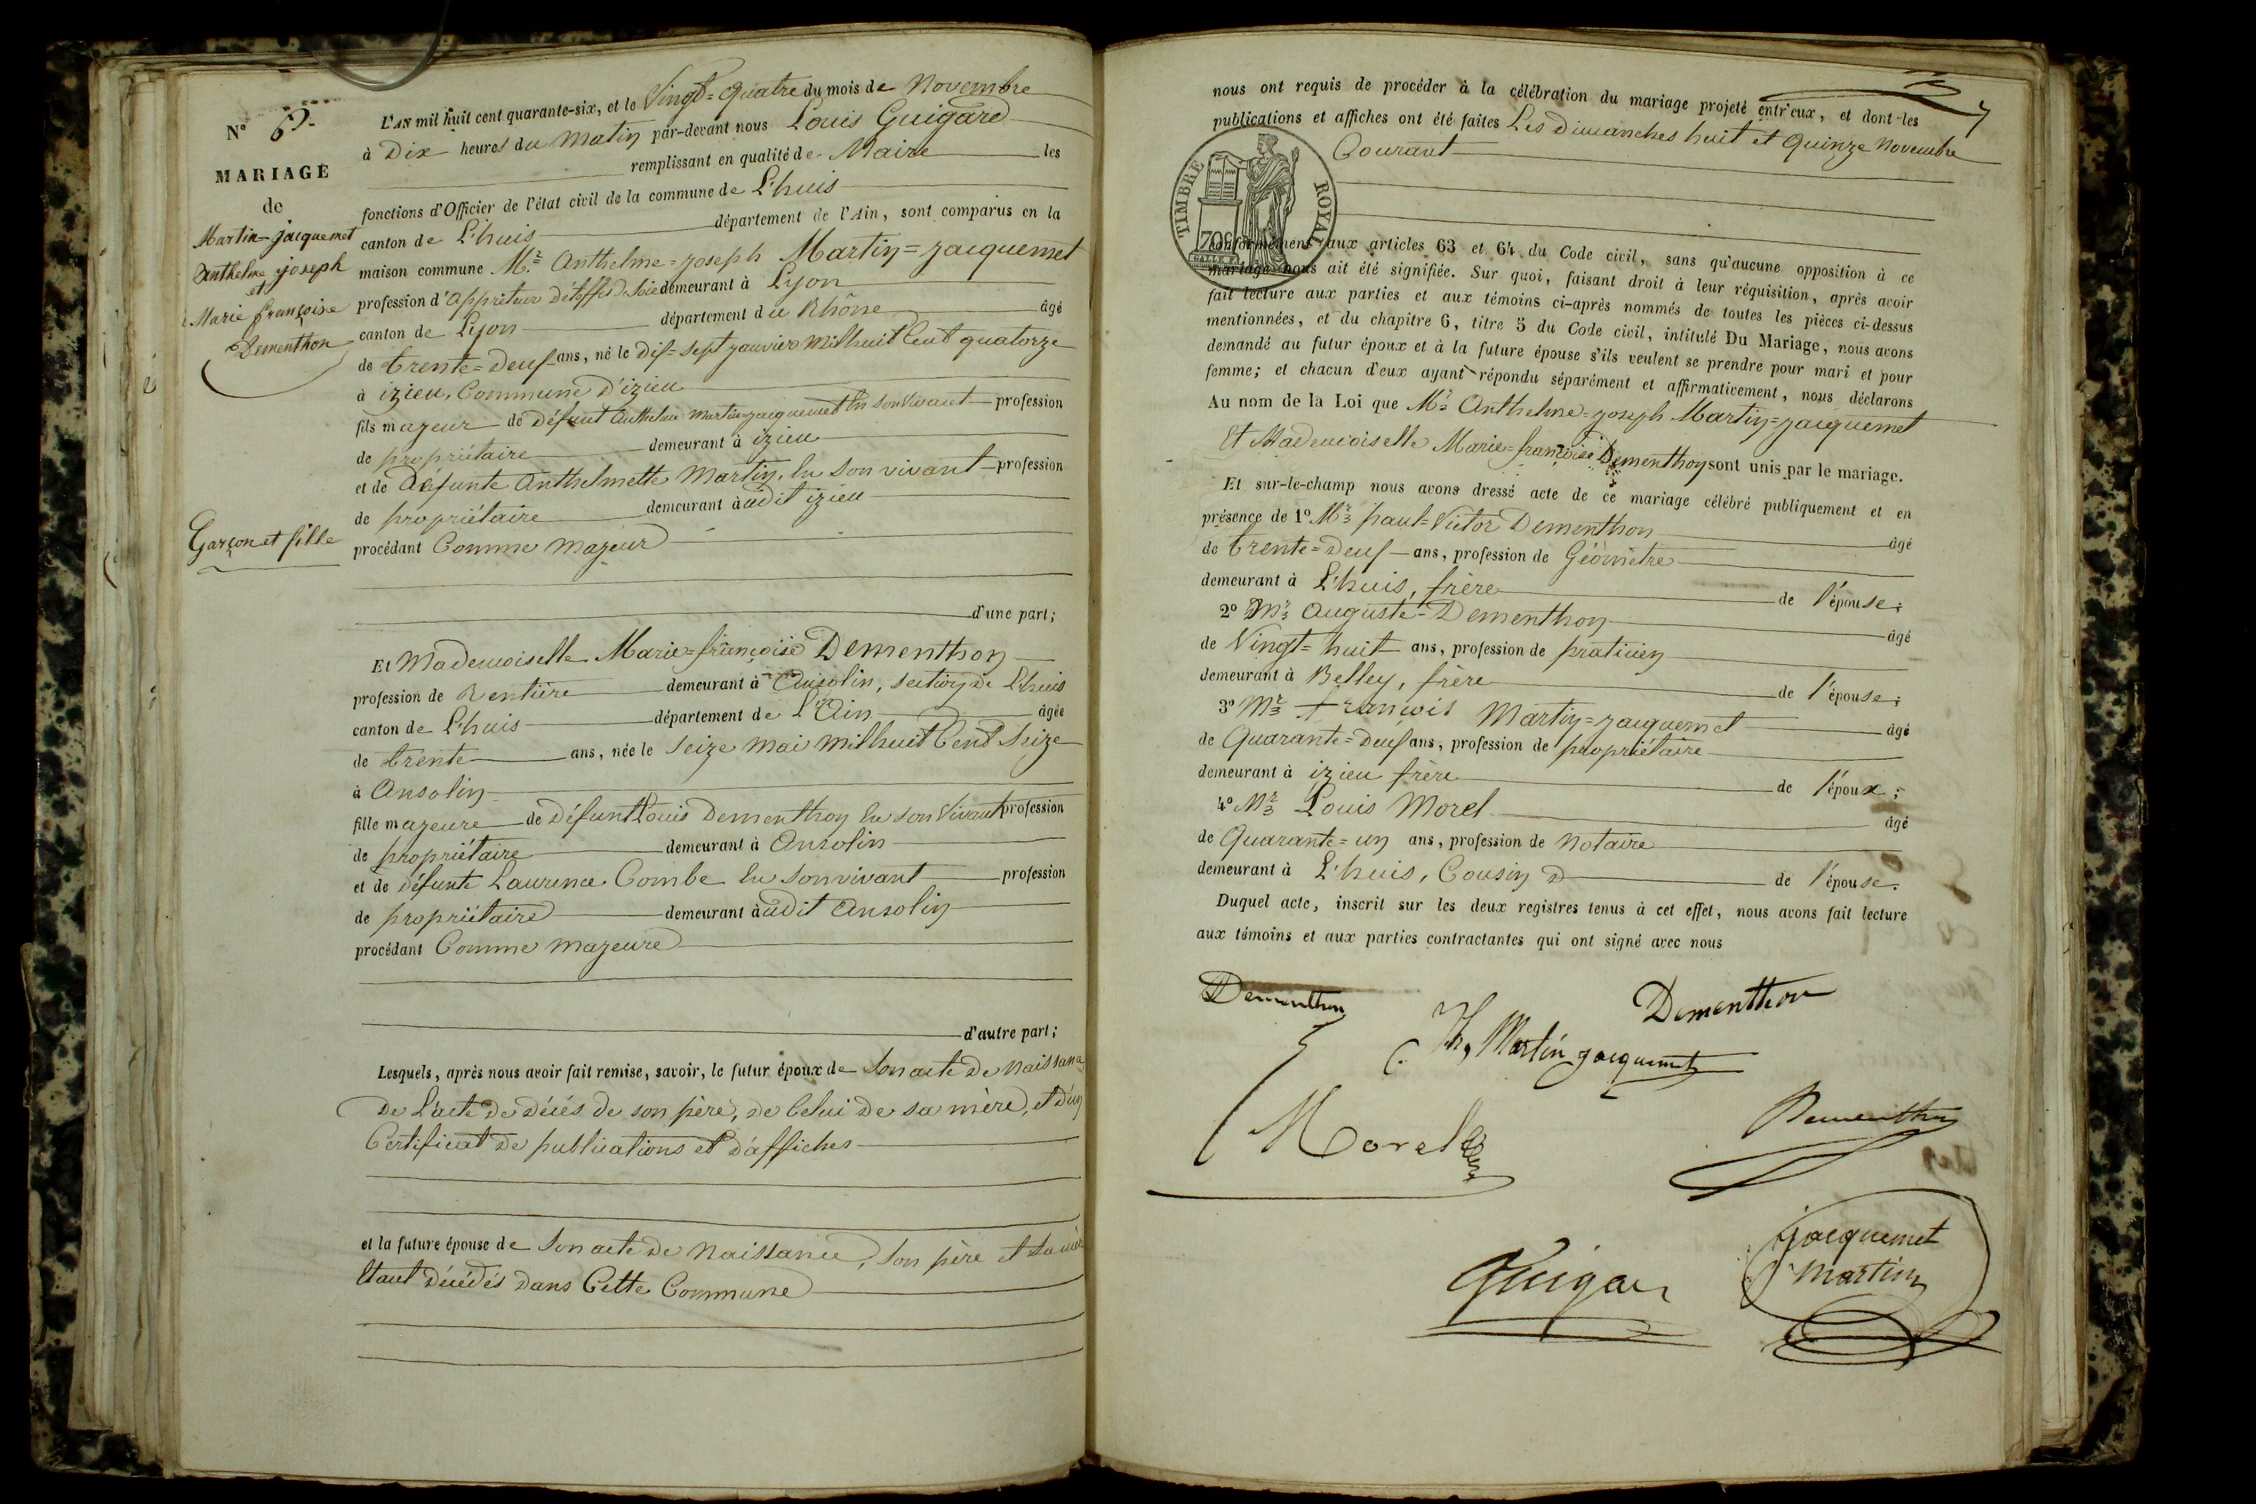 N° 6
MARIAGE
de
Martin=jacquemet
Anthelme joseph
et
Marie françoise
Dementhon
Garçon et fille
L'AN mil huit cent quarante-six, et le Vingt=Quatre du mois de Novembre
à Dix heures du Matin par-devant nous Louis Guigard
remplissant en qualité de Maire les
fonctions d'Officier de l'état civil de la commune de L'huis
canton de L'huis département de l'Ain, sont comparus en la
maison commune Mr Anthelme=joseph Martin=jacquemet
profession d'appreteur d'étoffes de soie demeurant à Lyon
canton de Lyon département du Rhône âgé
de trente=deux ans, né le dix=sept janvier mil huit Cent quatorze
à izieu, Commune d'izieu
fils majeur de Défunt Anthelme Martin-jacquemet En son vivant profession
de propriétaire demeurant à izieu
et de Défunte Anthelmette Martin, En Son vivant profession
de propriétaire demeurant à udit izieu
procédant Comme Majeur
d'une part;
Et Mademoiselle Marie=françoise Dementhon
profession de Rentière demeurant à Ansolin, section de L'huis
canton de L'huis département de L'Ain âgée
de trente ans, née le Seize Mai Mil huit Cent Seize
à Ansolin
fille majeure de Défunt Louis Dementhon En son Vivant profession
de propriétaire demeurant à Ansolin
et de défunte Laurence Combe En son vivant profession
de propriétaire demeurant à udit Ansolin
procédant Comme majeure
d'autre part;
Lesquels, après nous avoir fait remise, savoir, le futur époux de Son acte de Naissance
De L'acte de décés de son père, de Celui de sa mère, et d'un
Certificat de publications et d'affiches
et la future épouse de Son acte de Naissance, Son père et sa mère
Etant décédés dans Cette Commune
nous ont requis de procéder à la célébration du mariage projeté entr'eux, et dont les
publications et affiches ont été faites Les Dimanches huit et Quinze Novembre
Courant
TIMBRE ROYAL
70c
conformément aux articles 63 et 64 du Code civil, sans qu'aucune opposition à ce
mariage nous ait été signifiée. Sur quoi, faisant droit à leur réquisition, après avoir
fait lecture aux parties et aux témoins ci-après nommés de toutes les pièces ci-dessus
mentionnées, et du chapitre 6, titre 5 du Code civil, intitulé Du Mariage, nous avons
demandé au futur époux et à la future épouse s'ils veulent se prendre pour mari et pour
femme; et chacun d'eux ayant répondu séparément et affirmativement, nous déclarons
Au nom de la Loi que Mr Anthelme=joseph Martin=jacquemet
Et Mademoiselle Marie=françoise Dementhon sont unis par le mariage.
Et sur-le-champ nous avons dressé acte de ce mariage célébré publiquement et en
présence de 1° Mr paul=Victor Dementhon âgé
de trente=deux ans, profession de Géomètre
demeurant à L'huis, frère de l'épouse;
2° Mr Auguste Dementhon âgé
de Vingt=huit ans, profession de praticien
demeurant à Belley, frère de l'épouse;
3° Mr françois Martin=jacquemet âgé
de Quarante=Deux ans, profession de propriétaire
demeurant à izieu frère de l'époux;
4° Mr Louis Morel âgé
de Quarante=un ans, profession de Notaire
demeurant à L'huis, Cousin de l'épouse.
Duquel acte, inscrit sur les deux registres tenus à cet effet, nous avons fait lecture
aux témoins et aux parties contractantes qui ont signé avec nous
Dementhon
Dementhon
Martin jacquemet
Morel
Dementhon
Jacquemet
Martin
Guigar